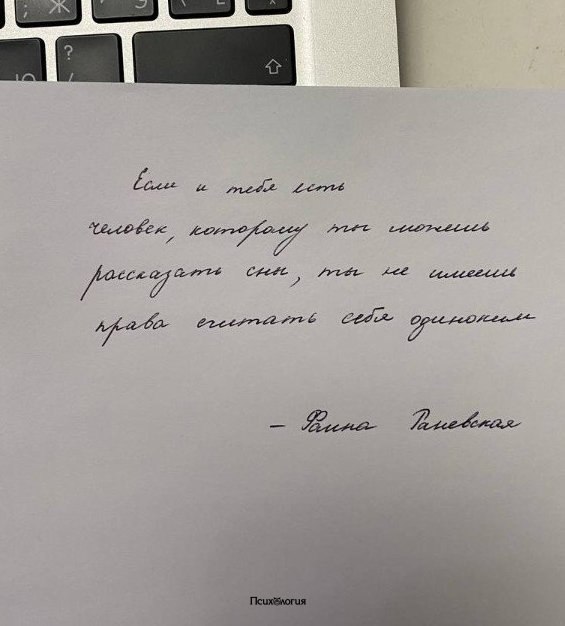 ; Ж
?
Ю /
Если и тебя есть
человек, которому ты можешь
рассказать сны, ты не имеешь
права считать себя одиноким
- Фаина Раневская
Психология